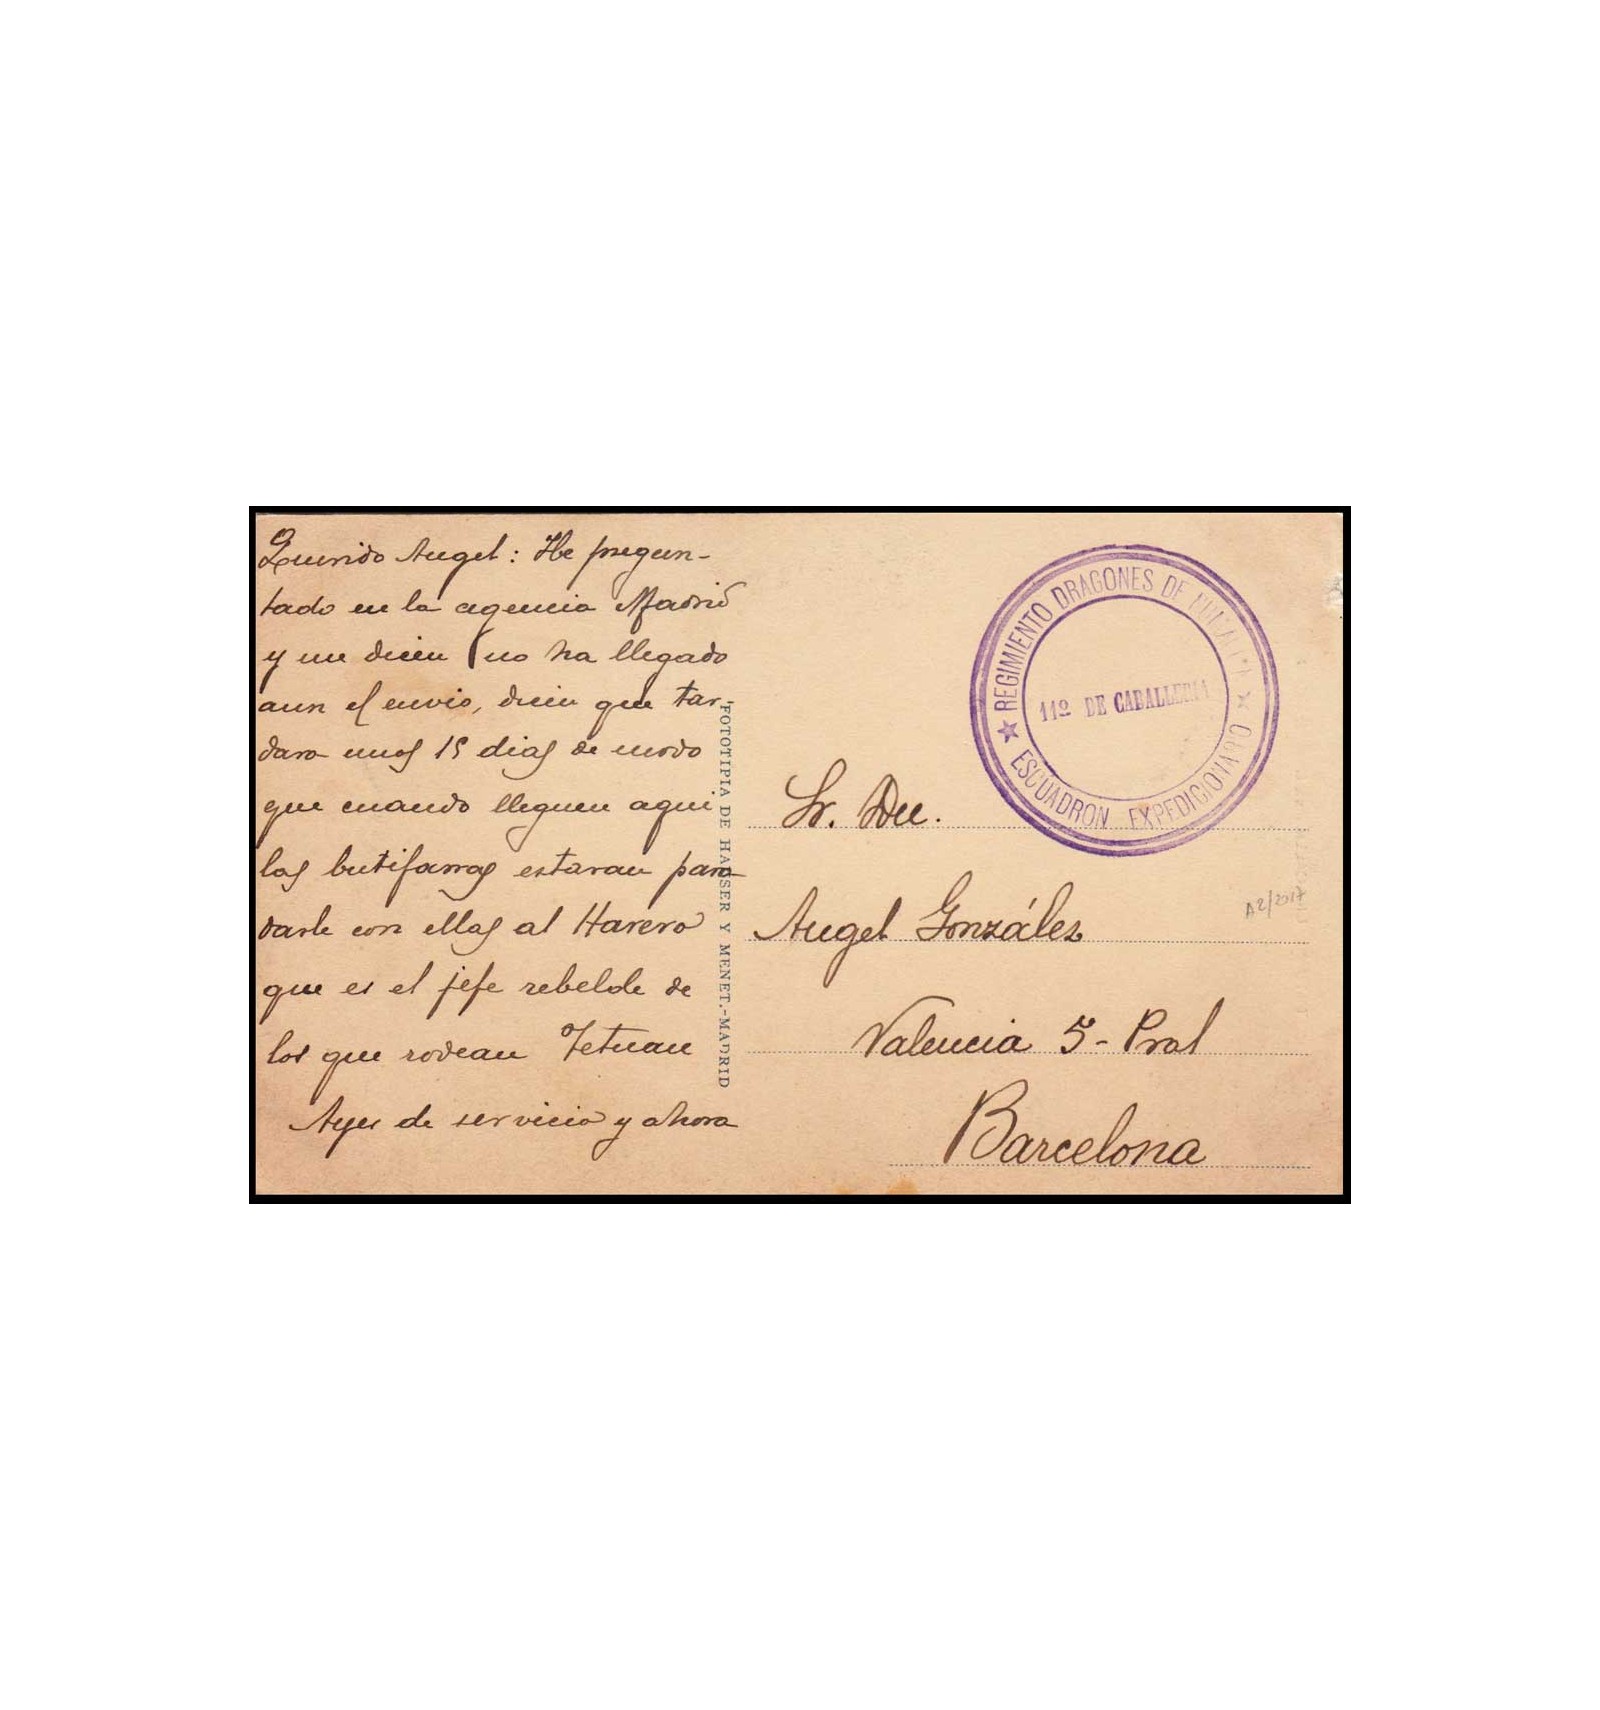 Querido Angel: He pregun-
tado en la agencia Madrid
y me dicen no ha llegado
aun el envio, dicen que tar-
dara unos 15 dias de modo
que cuando lleguen aqui
las butifarras estaran para
darle con ellas al Harero
que es el jefe rebelde de
los que rodean Tetuan
Ayer de servicio y ahora
FOTOTIPIA DE HAUSER Y MENET.-MADRID
REGIMIENTO DRAGONES DE NUMANCIA
11º DE CABALLERIA
ESCUADRON EXPEDICIONARIO
Sr. Dn.
A2/2017
Angel Gonzáles
Valencia 5 - Pral
Barcelona